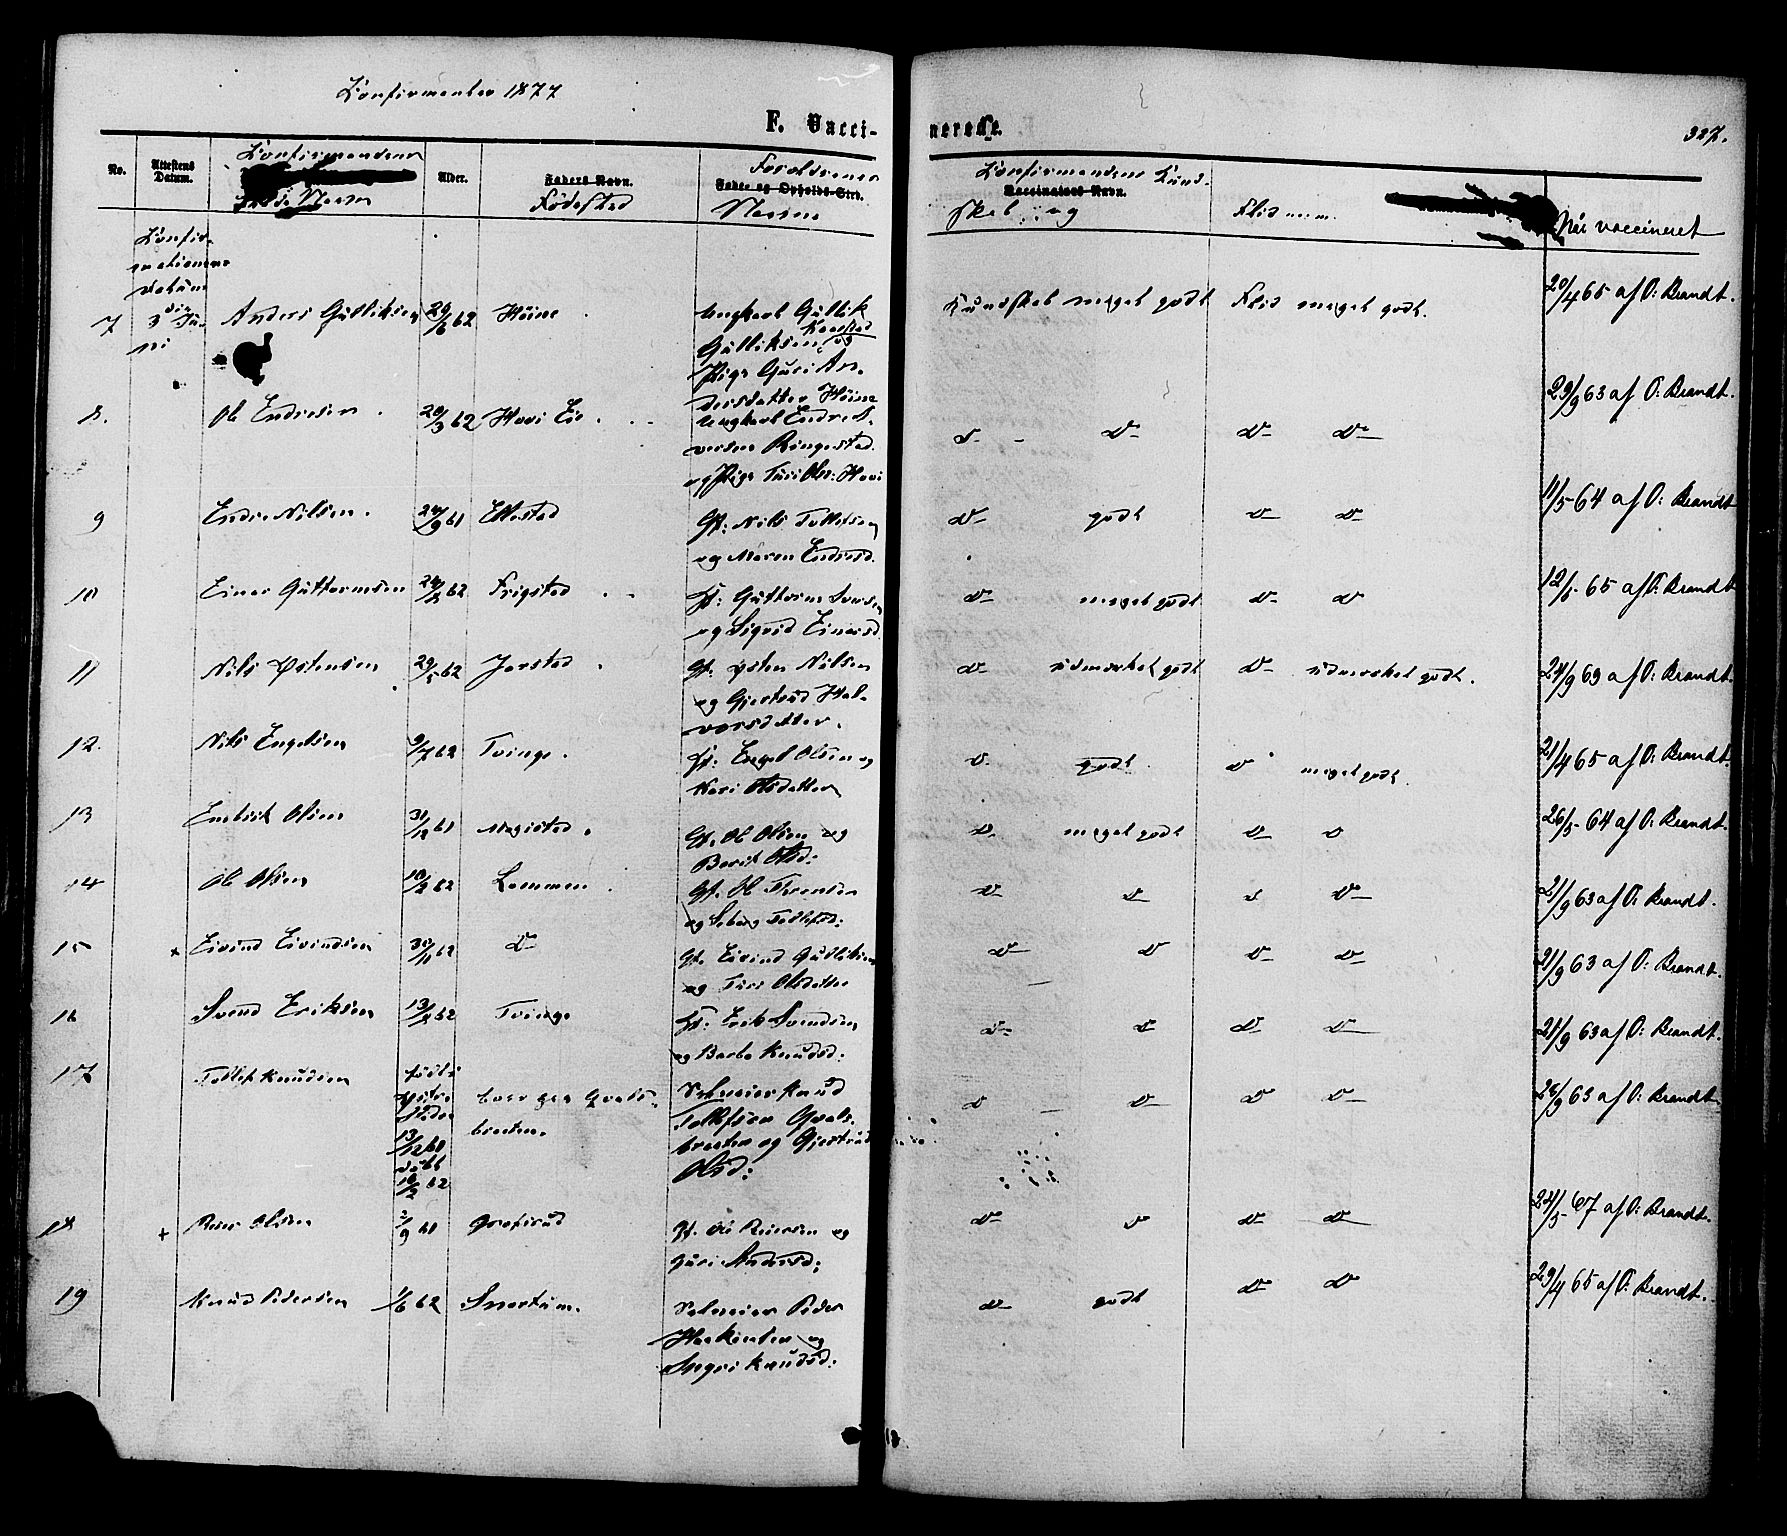 Konfirmenter 1877
F. Vacci-
nerede.
327.
No.
Attestens Datum.
Konfirmandens
fulde Navn
Alder.
Faders Navn.
Fødested
Forældrenes
Fødee og Opholds-Sted.
Navne
Konfirmandens Kund-
Vaccinatørs Navn.
skab og
Flid
Når vaccineret
Konfir-
mationens
Datum
7
3 Ju-
ni
Anders Gulliksen
29/6 62
Høine
Ungkarl Gullik
Gulliksen Kaastad og
Pige Guri An-
dersdatter Høine
Kundskab meget godt
Flid meget godt.
20/4 65 af O: Brandt.
8.
Ole Endresen
20/3 62
Hovi Eie
Ungkarl Endre
Ringestad
og Pige Turi Ols: Hovi
D- D- D- D-
23/9 63 af O: Brandt.
9
Endre Nilsen.
24/9 61
Ellestad
Gf: Nils Tollefsen
og Maren Endresd.
D- godt D- D-
11/5 64 af O: Brandt
10
Einar Guttormsen
62
Frigstad
Gf: Guttorm
og Sigrid Einarsd.
D- meget godt D- D
12/5 65 af O: Brandt
11
Nils Østensen
29/5 62
Jarstad
Gf: Østen Nilsen
og Gjertrud Hal-
vorsdatter.
D- udmærket godt D- udmærket godt.
24/9 63 af O: Brandt.
12.
Nils Engelsen
9/7 62
Tvinge.
Gf: Engel Olsen og
Kari Olsdatter
D- godt D meget godt.
21/4 65 af O: Brandt.
13
Embrik Olsen
31/12 61
Magistad.
Gf: Ole Olsen og
Berit Olsd:
D- meget godt D- D
26/5 64 af O: Brandt.
14
Ole Olsen
10/2 62
Lommen
Gf. Ole
og Tollefsd:
D- D D D-
21/9 63 af O: Brandt.
15
+ Eivind Eivindsen
30/11 62
D-
Gf. Eivind Gulliksen
og Turi Olsdatter
D- D D- D-
21/9 63 af O: Brandt.
16
Svend Eriksen
13/2 62
Tvinge
Gf: Erik Svendsen
og Barbo Knudsd:
D- D D- D-
21/9 63 af O: Brandt.
17
Tollef Knudsen
født i
13/12 61
døbt
16/2 62
Qvals-
braaten.
Selveier Knud
Tollefsen Qvals-
braaten og Gjertrud
Olsd:
D D- D D-
63 af O: Brandt
18
+ Reier Olsen
2/9 61
Grøfsrud
Gf. Ole Reiersen og
Guri Andersd:
D- D D- D-
24/5 67 af O: Brandt.
19
Knud Pedersen
1/6 62
Snertum.
Selveier Peder
og
Ingri Knudsd:
D- godt D- D
29/4 65 af O: Brandt.